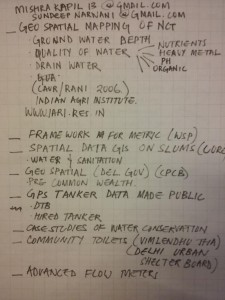 MISHRA KAPIL 13@GMAIL.COM
SUNDEEP NARWANI@GMAIL.COM
GEO SPATIAL MAPPING OF NCT
GROUND WATER DEPTH
QUALITY OF WATER
NUTRIENTS
HEAVY METAL
PH
ORGANIC
DRAIN WATER
(CAUR/RANI 2006)
INDIAN AGRI INSTITUTE.
WWW.IARI.RES.IN
FRAMEWORK FOR METRIC (WSP)
SPATIAL DATA GIS ON SLUMS
WATER & SANITATION
GEO SPATIAL (DEL. GOV) (CPCB)
PRE COMMON WEALTH.
GPS TANKER DATA MADE PUBLIC
DTB
HIRED TANKER
CASE STUDIES OF WATER CONSERVATION
COMMUNITY TOILETS (VIMLENDHU JHA)
(DELHI URBAN
SHELTER BOARD)
ADVANCED FLOW METERS